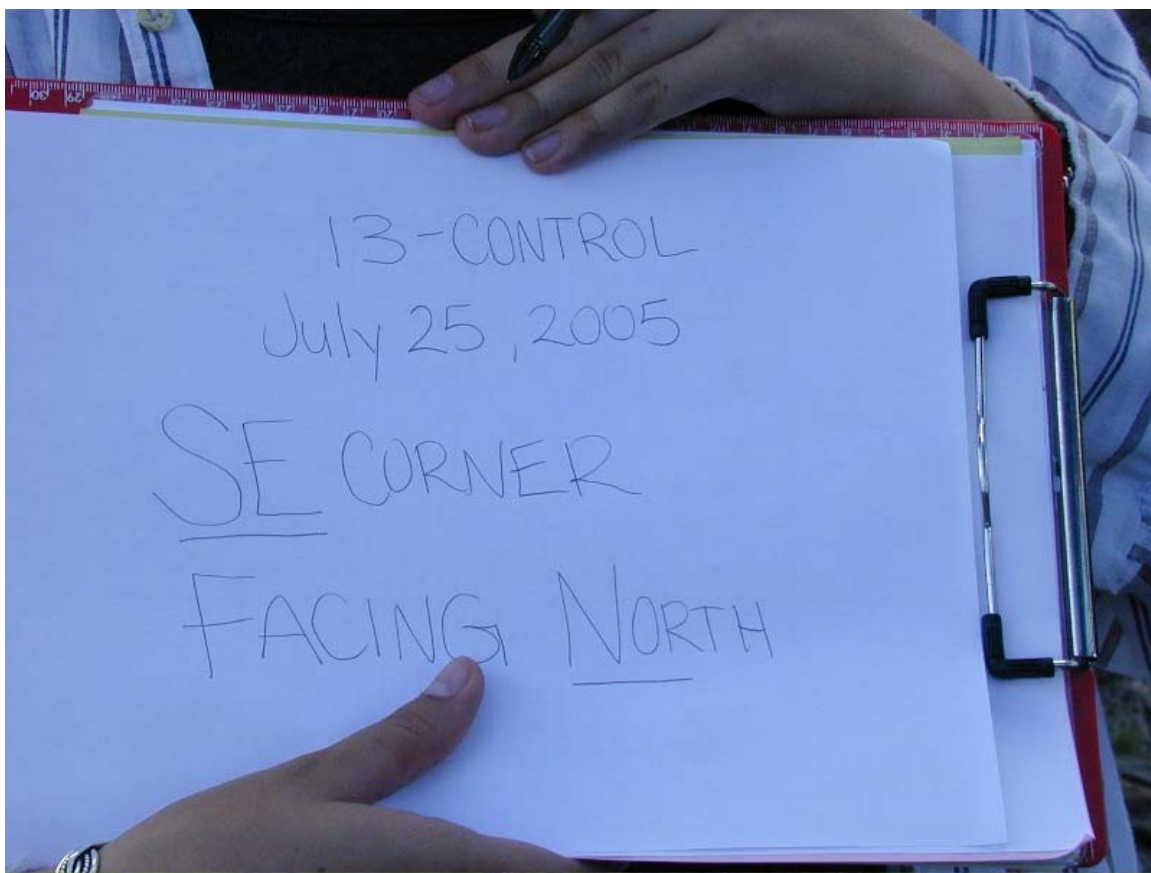 13-CONTROL
July 25, 2005
SE CORNER
FACING NORTH